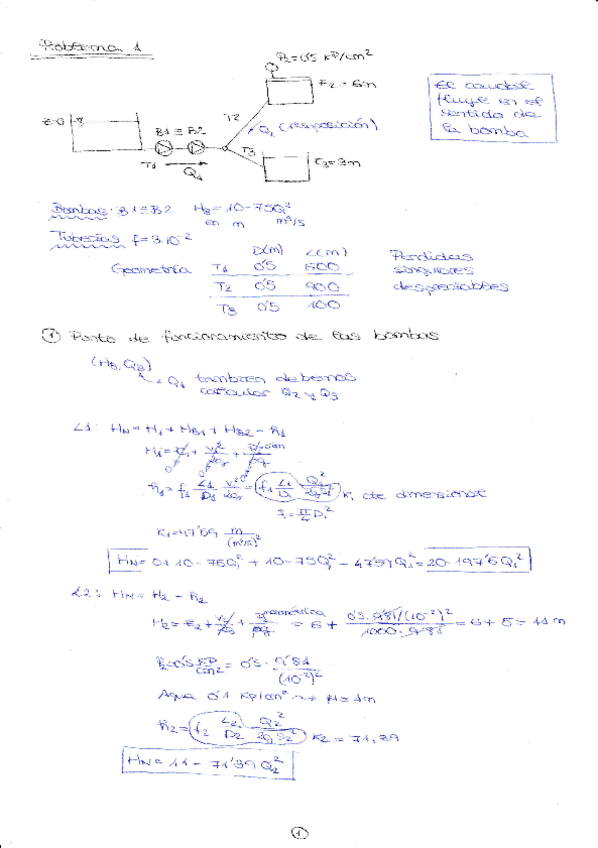 Problema 1
P2 = 0'5 kp/cm²
Z2 = 6m
El caudal
fluye en el
sentido de
la bomba
Z=0
T2
Q2 (suposición)
B1 ≡ B2
T3
Z3 = 3m
T1
Q1
Bombas: B1 ≡ B2 HB = 10 - 75Q²
en m m³/s
Tuberías f = 3·10⁻²
D(m) L(m)
Geometría T1 0'5 600
T2 0'5 900
T3 0'5 100
Pérdidas
singulares
despreciables
① Punto de funcionamiento de las bombas
(HB, QB)
= Q1 también debemos
calcular Q2 y Q3
L1: HN = H1 + HB1 + HB2 - h1
h1 = f1 L1/D1 V1²/2g = f1 L1/D1 Q1²/2gS² K1 cte dimensional
S = π/4 D²
K1 = 47'59 m/(m³/s)²
HN = 0+10-75Q1² + 10-75Q1² - 47'59Q1² = 20-197'6Q1²
L2: HN = H2 - h2
= 6 + 0'5·9'81/(10⁻²)² / 1000·9'81 = 6 + 5 = 11 m
P2 = 0'5 kp/cm² = 0'5 · 9'81/(10⁻²)²
Agua 0'1 kp/cm² → H = 1m
h2 = f2 L2/D2 Q2²/2gS2² K2 = 71,39
HN = 11 - 71'39 Q2²
1